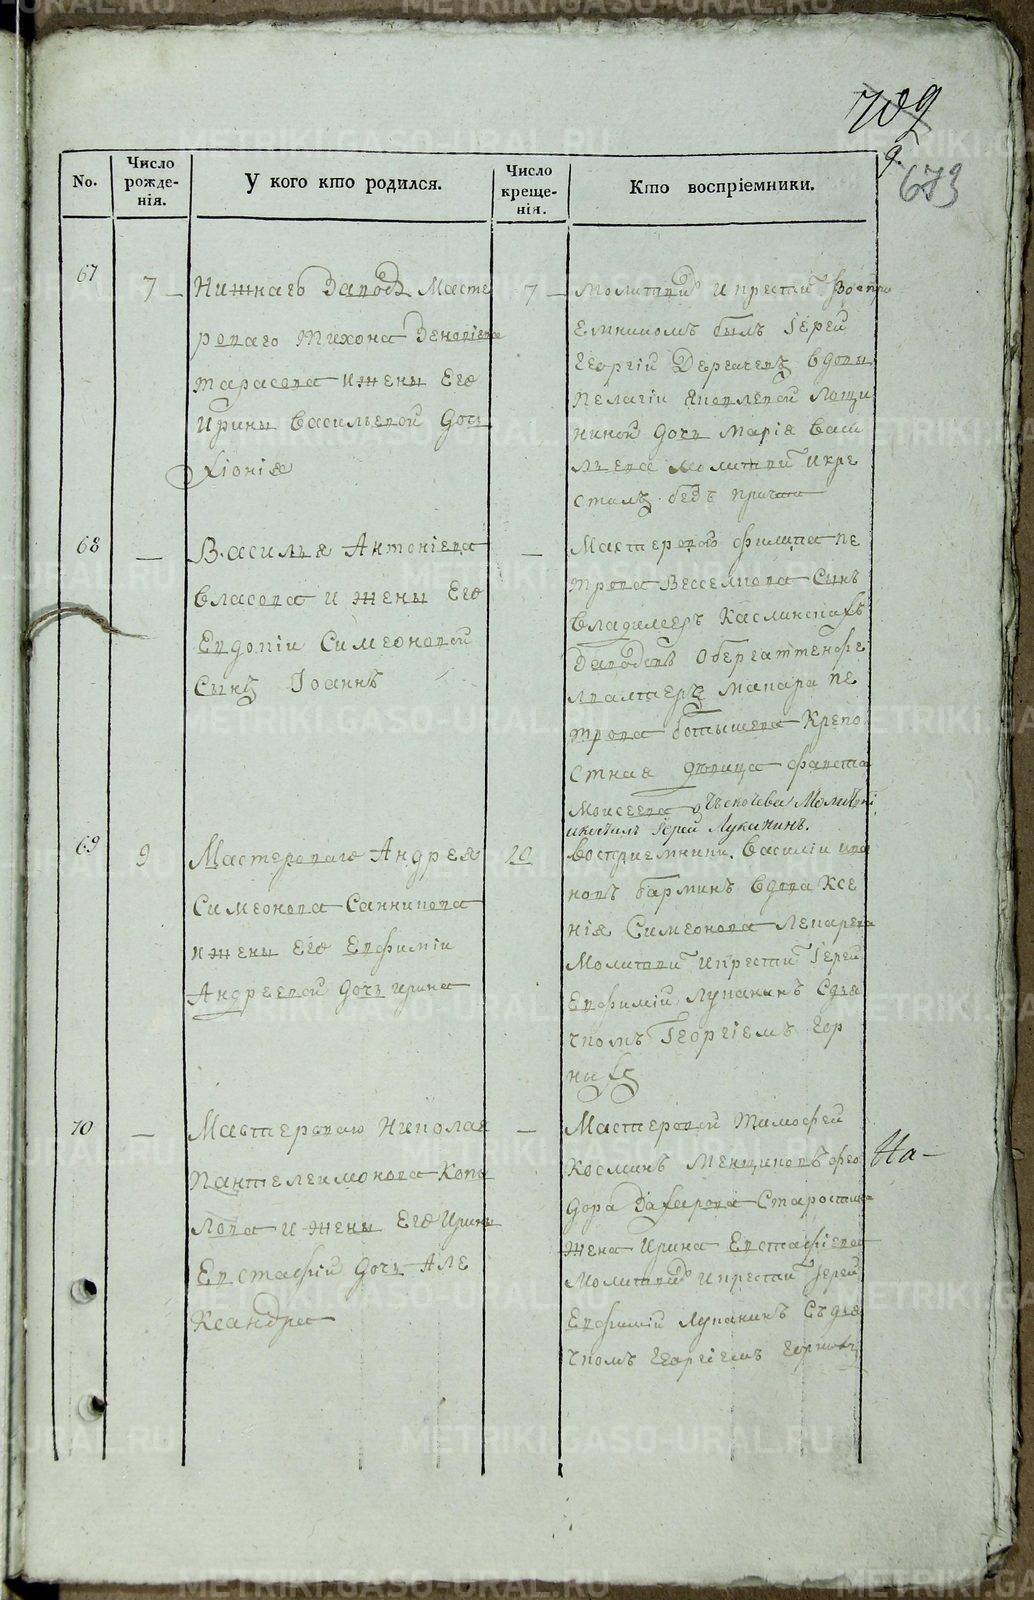 709
673
No.
Число рожденія.
У кого кто родился.
Число крещенія.
Кто воспріемники.
67
7
Нижнаго Завода Масте
роваго Тихона Зеновіева
Тарасова и жены Его
Ирины Васильевой дочь
Хіонія
7
Молитвил и крестил Воспри
емникомъ былъ Іерей
Георгій Дергачевъ вдовы
Пелагіи Яковлевой Лощи
ниной дочь Марія Васи
льева молитвил и кре
стилъ безъ причта
68
—
Василья Антоніева
Власова и жены Его
Евдокіи Симеоновой
Сынъ Іоаннъ
—
Мастерового Филипа Пе
трова Весселкова Сынъ
Владимеръ Каслинскахъ
Заводовъ Обергиттенфе
рвалтера Макара Пе
трова Ботышева Крепо
стная девица Фавста
Моисеева
Іерей Луканинъ.
69
9
Мастероваго Андрея
Симеонова Санникова
и жены Его Евфиміи
Андреевой дочь Ирина
20
Воспріемники Василіи Ива
новъ Барминъ вдова Ксе
нія Симеонова Пекарева
Молитвил и крестил Іерей
Евфимій Луканинъ Сдья
чкомъ Георгіемъ Чер
ныхъ
70
—
Мастероваго Николая
Пантелеимонова Копы
лова и жены Его Ирины
Евстафій дочь Але
ксандра
—
Мастеровой Тимофей
Косминъ Менщиковъ Фео
дора Захарова Старостина
жена Ирина Евстафіева
Молитвил и крестил Іерей
Евфимій Луканинъ Съдья
чкомъ Георгіемъ Черныхъ
На—
METRIKI.GASO-URAL.RU